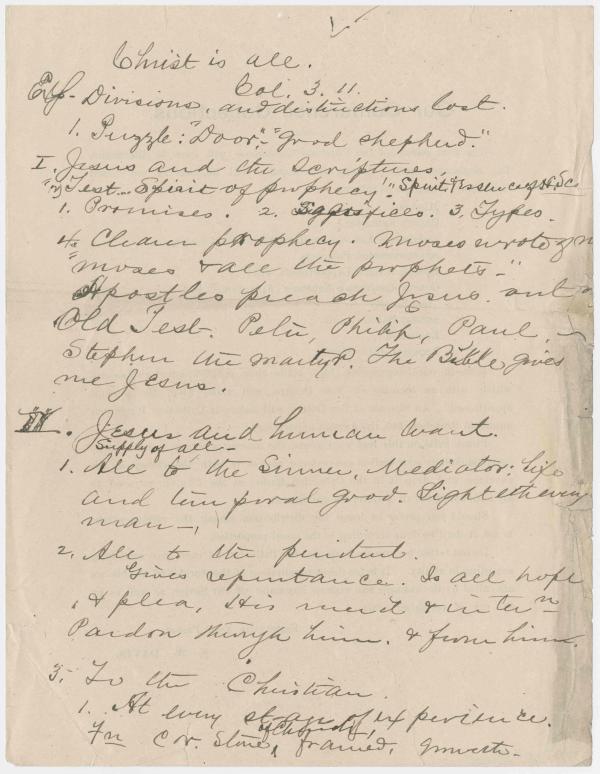 Christ is all.
Col. 3. 11.
Divisions, and distinctions lost.
1. Puzzle: "Door", "Good shepherd."
I. Jesus and the Scriptures.
Test. Spirit of prophecy." Spirit & essence of
1. Promises. 2. Sacrifices. 3. Types.
4. Clearer prophecy. Moses wrote of m
"Moses & all the prophets-"
Apostles preach Jesus. out of
Old Test. Peter, Philip, Paul,
Stephen the martyr. The Bible gives
me Jesus.
II. Jesus and human want.
Supply of all-
1. All to the Sinner, Mediator: life
and temporal good. Lighteth every
man-,
2. All to the penitent.
Gives repentance. Is all hope
& plea, His merit & inter n
Pardon through him. & from him.
3. To the Christian.
1. At every stage of experience.
Fn Cor. Stone, framed, groweth-